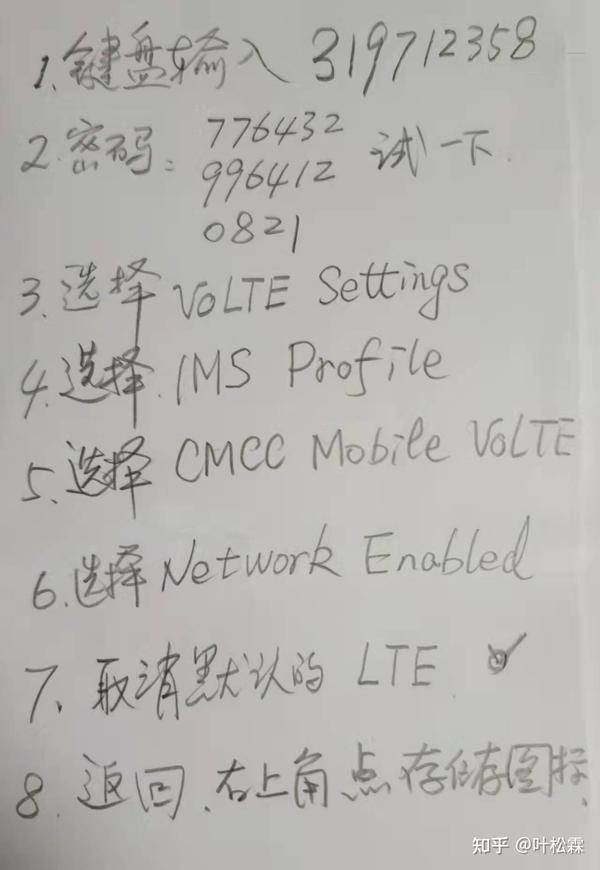 1. 键盘输入 319712358
2. 密码: 776432
996412 试一下.
0821
3. 选择 VoLTE Settings
4. 选择. IMS Profile
5. 选择 CMCC Mobile VoLTE
6. 选择 Network Enabled
7. 取消默认的 LTE ✓
8. 返回、右上角点存储图标.
知乎 @叶松霖